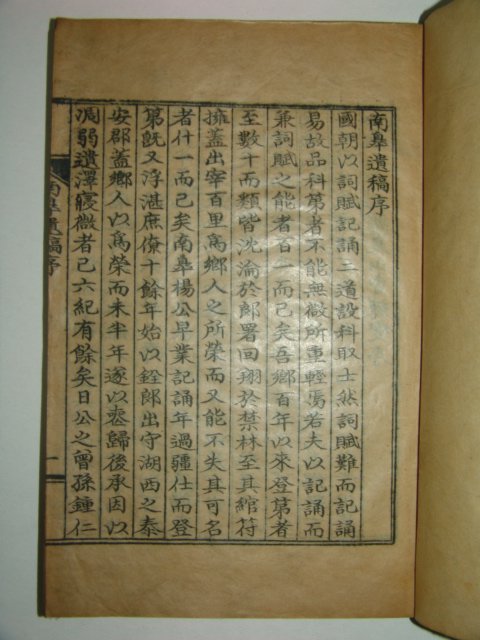 南皐遺稿序
國朝以詞賦記誦二道設科取士然詞賦難而記誦
易故品科第者不能無微所重輕焉若夫以記誦而
兼詞賦之能者百一而已矣吾鄉百年以來登第者
至數十而類皆沈淪於郎署回翔於禁林至其綰符
擁盖出宰百里爲鄉人之所榮而又能不失其可名
者什一而已矣南皐楊公早業記誦年過疆仕而登
第旣又浮湛庶僚十餘年始以銓郎出守湖西之泰
安郡盖鄉人以爲榮而未半年遂以丧歸後承因以
凋弱遺澤寢微者已六紀有餘矣日公之曾孫鍾仁
南皐遺稿序
一